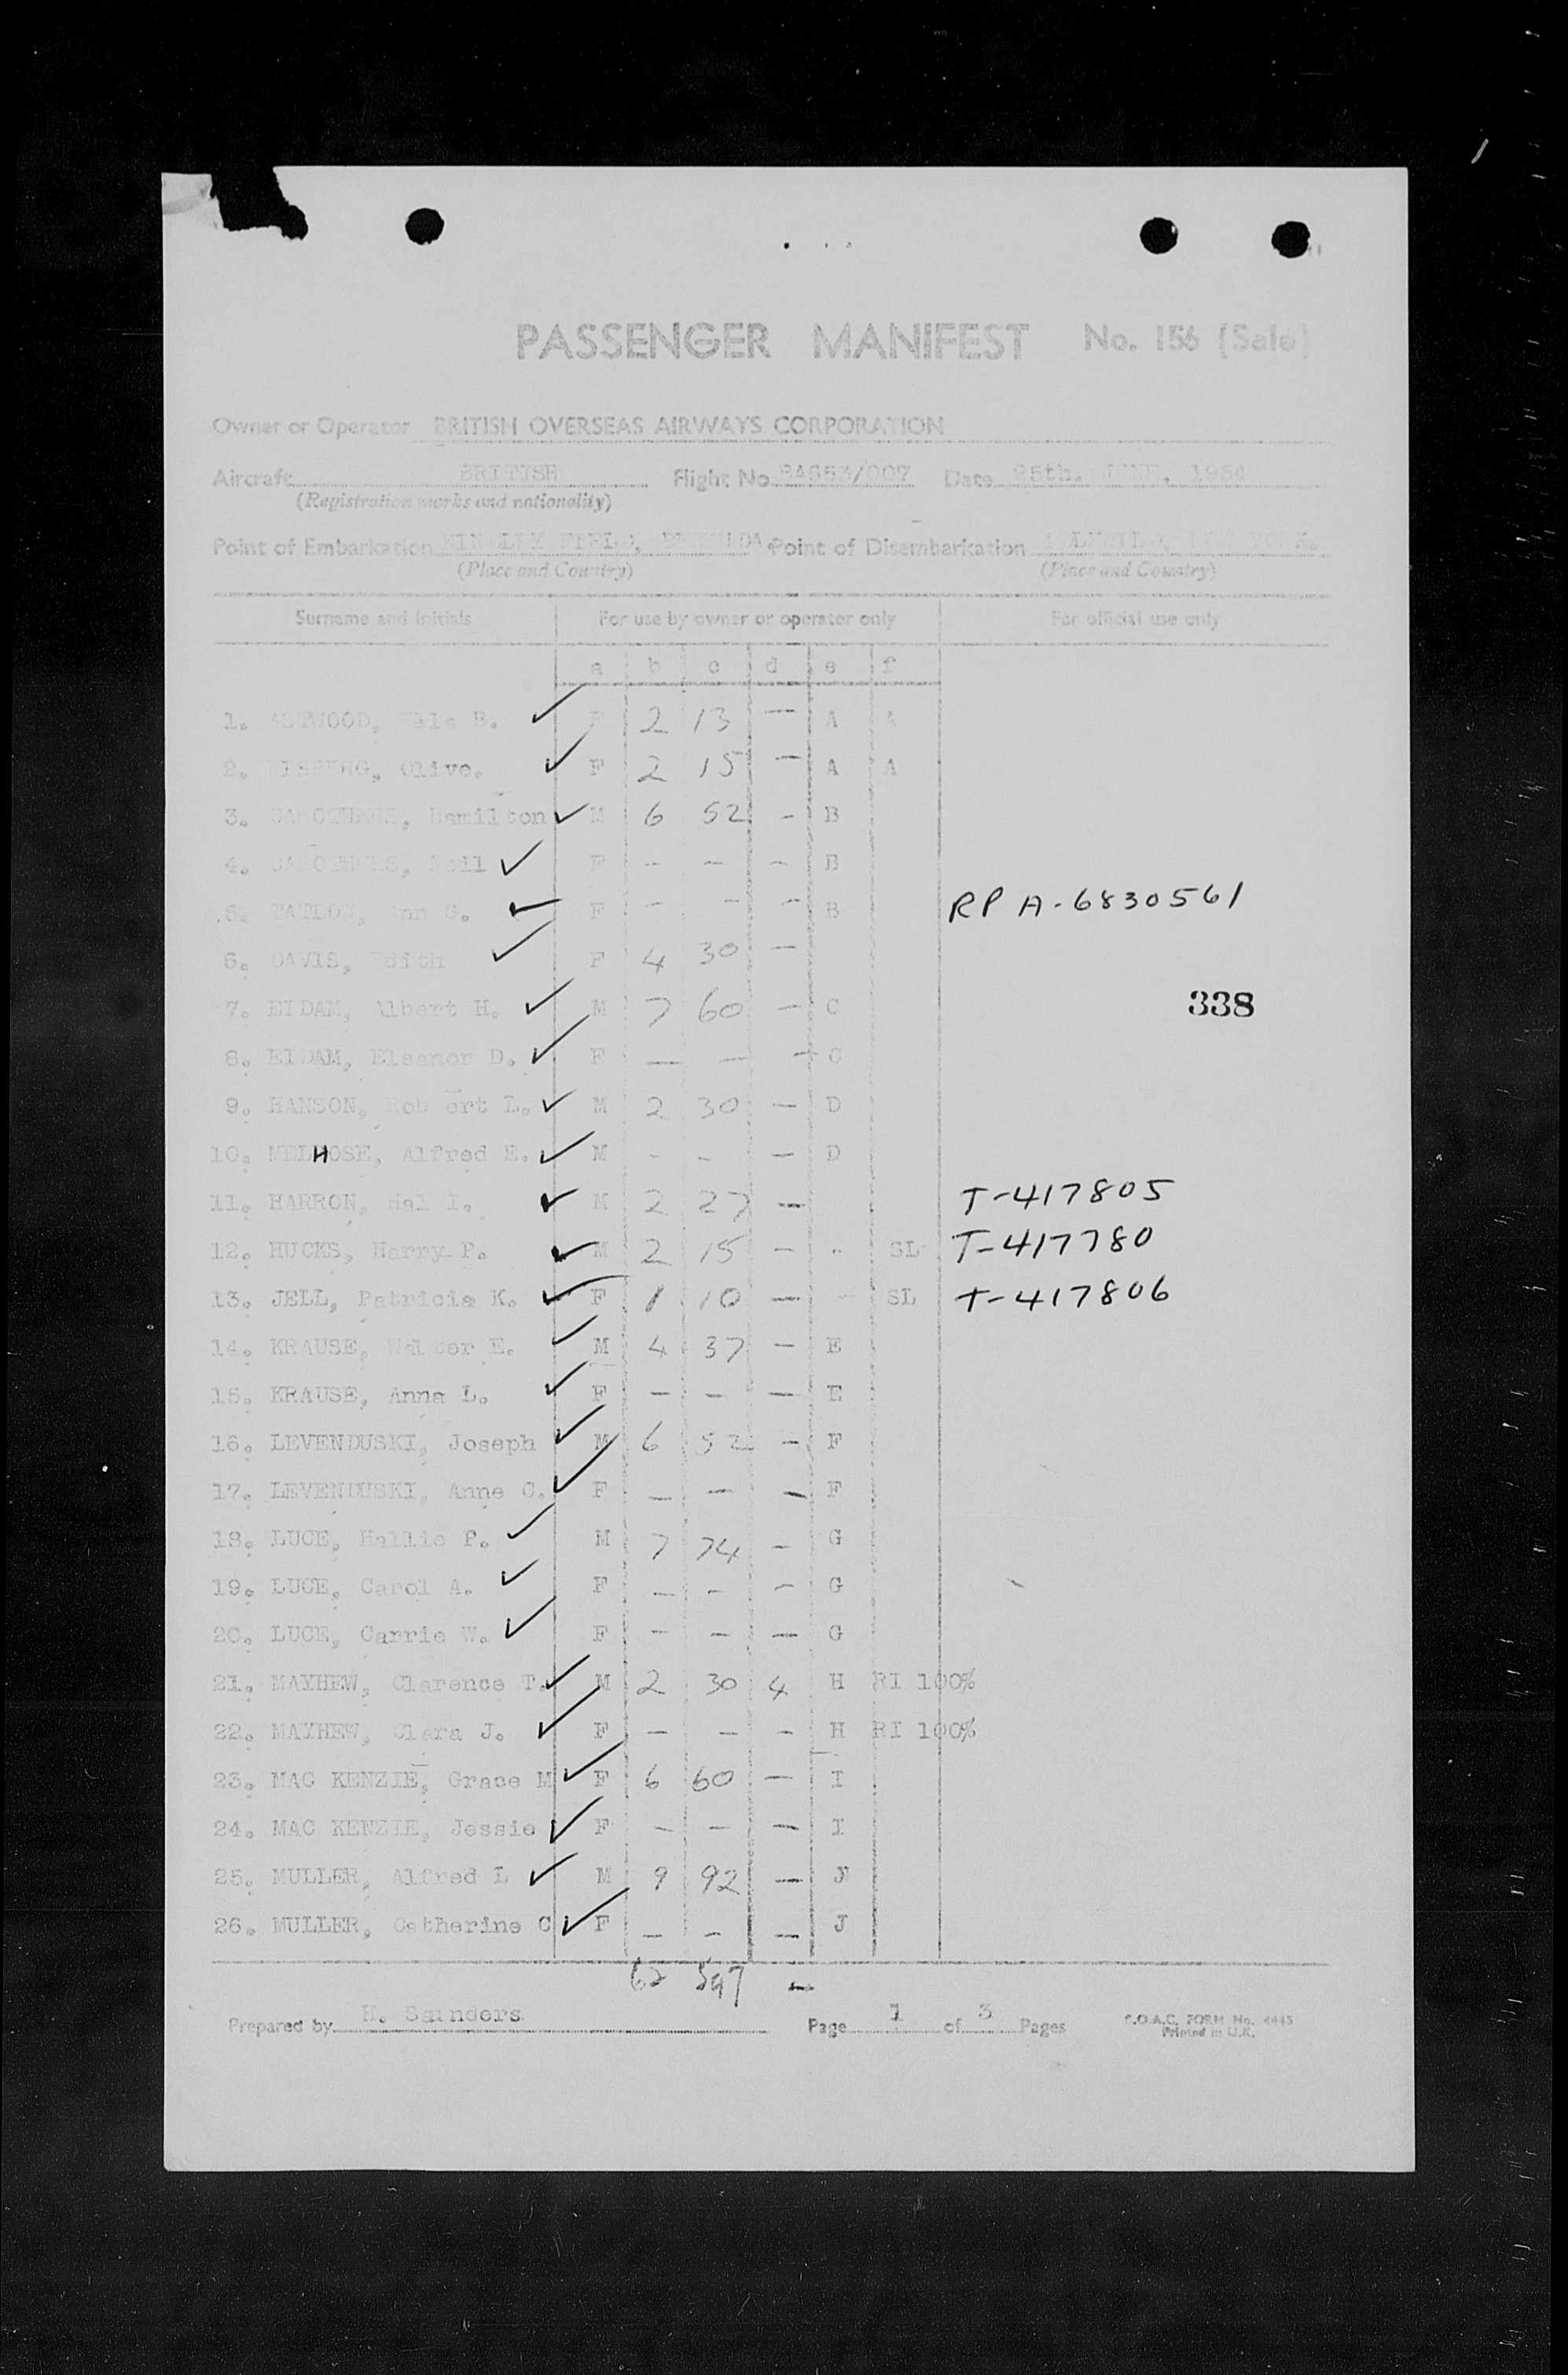 PASSENGER MANIFEST No. 156 (Sale)
Owner or Operator BRITISH OVERSEAS AIRWAYS CORPORATION
Aircraft BRITISH Flight No. BA653/007 Date 25th. JUNE, 1954
(Registration marks and nationality)
Point of Embarkation KINDLEY FIELD, BERMUDA. Point of Disembarkation IDLEWILD, NEW YORK.
(Place and Country) (Place and Country)
Surname and initials For use by owner or operator only For official use only
a b c d e f
1. B. ✓ F 2 13 — A A
2. Olive. ✓ F 2 15 — A A
3. CAROTHERS, Hamilton ✓ M 6 52 - B
4. CAROTHERS, ✓ F - - - B
5. Ann G. ✓ F - - - B RP A-6830561
6. DAVIS, Edith ✓ F 4 30 —
7. EIDAM, Albert H. ✓ M 7 60 — C
338
8. EIDAM, Eleanor D. ✓ F — — — C
9. HANSON, Robert L. ✓ M 2 30 — D
10. MELHOSE, Alfred E. ✓ M - - — D
11. HARRON, Hal I. ✓ M 2 27 — T-417805
12. HUCKS, Harry P. ✓ M 2 15 — SL T-417780
13. JELL, Patricia K. ✓ F 1 10 — SL T-417806
14. KRAUSE, Walter E. ✓ M 4 37 — E
15. KRAUSE, Anna L. ✓ F — - — E
16. LEVENDUSKI, Joseph ✓ M 6 52 - F
17. LEVENDUSKI, Anne C. ✓ F — — — F
18. LUCE, Hallie P. ✓ M 7 74 - G
19. LUCE, Carol A. ✓ F — - - G
20. LUCE, Carrie W. ✓ F - - — G
21. MAYHEW, Clarence T. ✓ M 2 30 4 H RI 100%
22. MAYHEW, Clara J. ✓ F — — - H RI 100%
23. MAC KENZIE, Grace M ✓ F 6 60 — I
24. MAC KENZIE, Jessie ✓ F — — — I
25. MULLER, Alfred L ✓ M 9 92 — J
26. MULLER, Catherine C ✓ F — - — J
62 597 —
Prepared by H. Saunders Page 1 of 3 Pages B.O.A.C. FORM No. 4445
Printed in U.K.